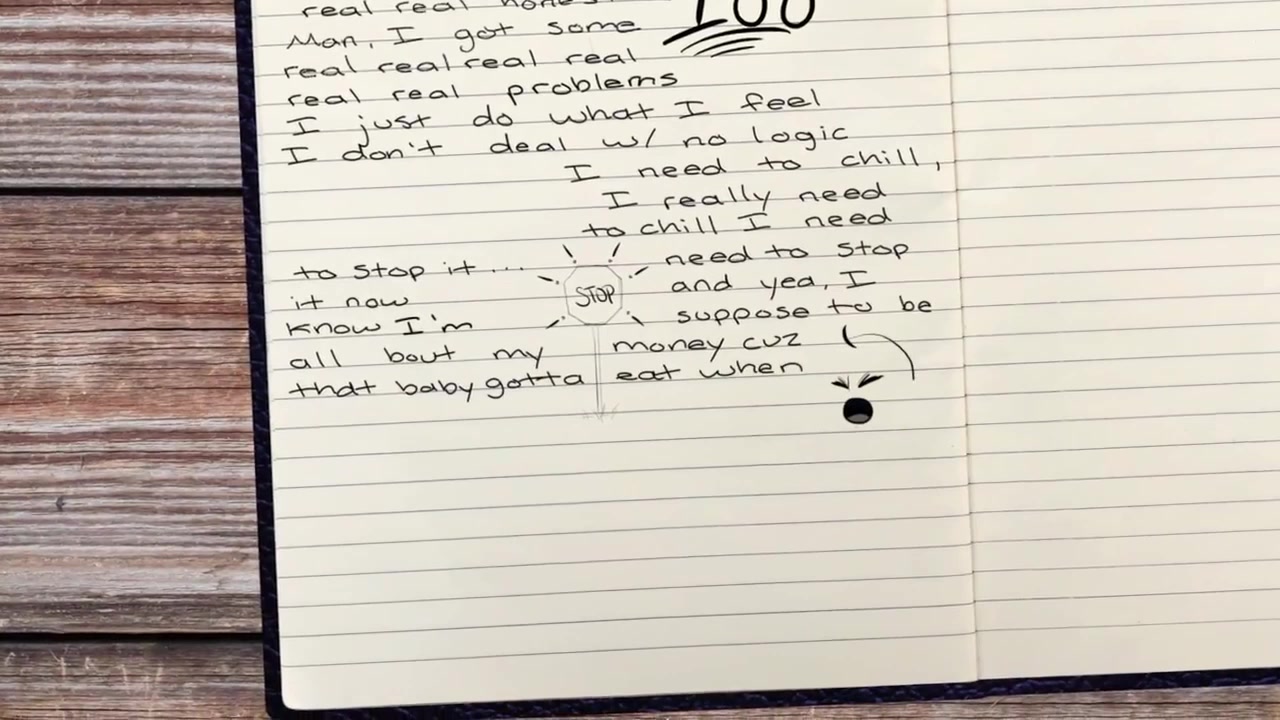 real real
100
Man, I got some
real real real real
real real problems
I just do what I feel
I don't deal w/ no logic
I need to chill,
I really need
to chill I need
to stop it... need to stop
STOP
it now and yea, I
know I'm suppose to be
all bout my money cuz
that baby gotta eat when